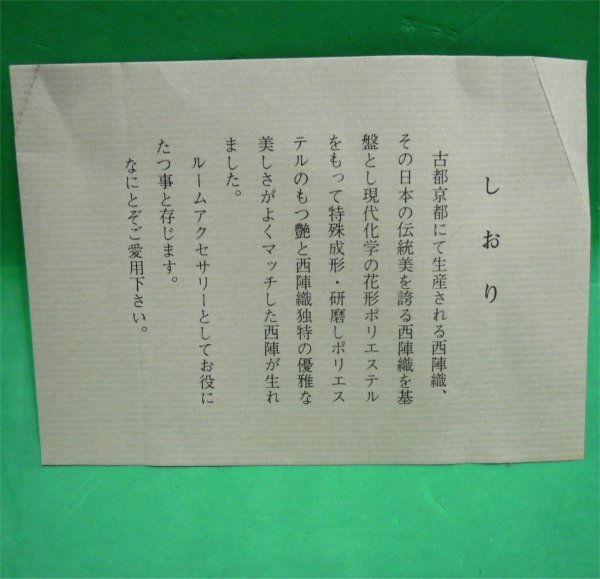 しおり
古都京都にて生産される西陣織、
その日本の伝統美を誇る西陣織を基
盤とし現代化学の花形ポリエステル
をもって特殊成形・研磨しポリエス
テルのもつ艶と西陣織独特の優雅な
美しさがよくマッチした西陣が生れ
ました。
ルームアクセサリーとしてお役に
たつ事と存じます。
なにとぞご愛用下さい。